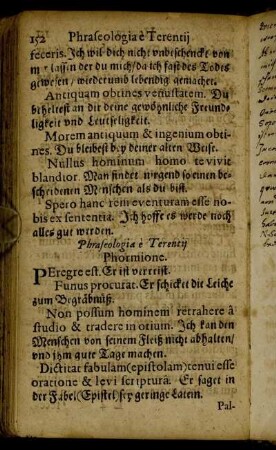 152 Phraseologia è Terentij
feceris. Ich wil dich nicht vnbeschenckt von
mir lassen der du mich/da ich fast des Todes
gewesen/wieder umb lebendig gemachet.
Antiquam obtines venustatem. Du
beheltest an dir deine gewöhnliche Freund-
ligkeit vnd Leutseligkeit.
Morem antiquum & ingenium obti-
nes. Du bleibest bey deiner alten Weise.
Nullus hominum homo te vivit
blandior. Man findet nirgend so einen be-
scheidenen Menschen als du bist.
Spero hanc rem eventuram esse no-
bis ex sententia. Ich hoffe es werde noch
alles gut werden.
Phraseologia è Terentij
Phormione.
PEregre est. Er ist verreist.
Funus procurat. Er schicket die Leiche
zum Begräbnüß.
Non possum hominem retrahere à
studio & tradere in otium. Ich kan den
Menschen von seinem Fleiß nicht abhalten/
vnd jhm gute Tage machen.
Dictitat fabulam(epistolam)tenui esse
oratione & levi scripturâ. Er saget in
der Fabel(Epistel)sey geringe Latein.
Pal-